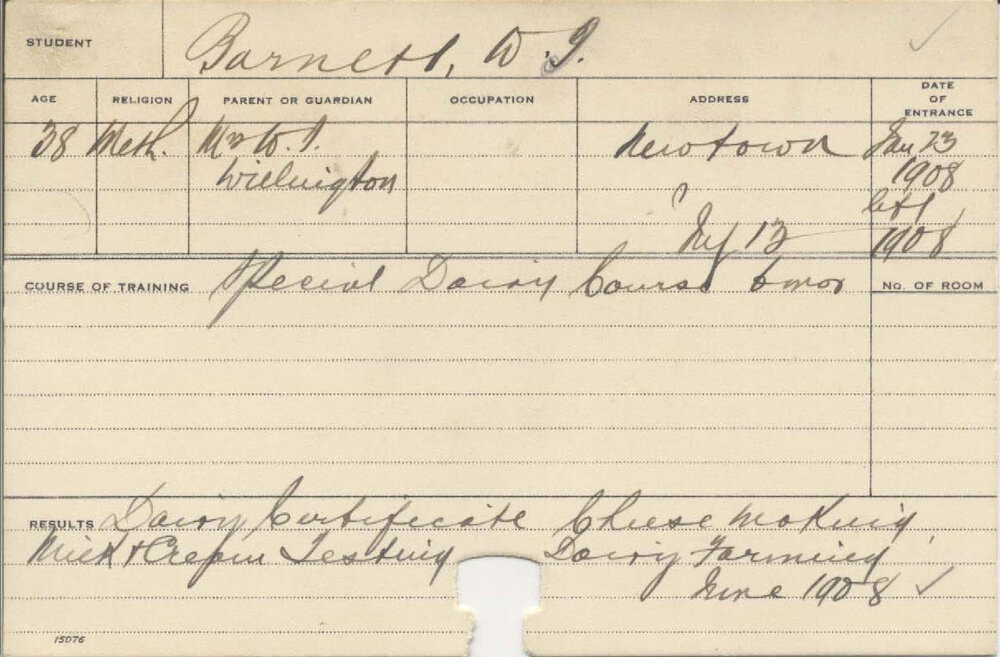 STUDENT Barnett, W.J.
AGE RELIGION PARENT OR GUARDIAN OCCUPATION ADDRESS DATE OF ENTRANCE
38 Meth. Mr W. J. Newtown Jan 23
Willington 1908
left
July 12 1908
COURSE OF TRAINING Special Dairy Course 6 mos No. OF ROOM
RESULTS Dairy Certificate Cheese Making
Milk & Cream Testing Dairy Farming
June 1908
15076